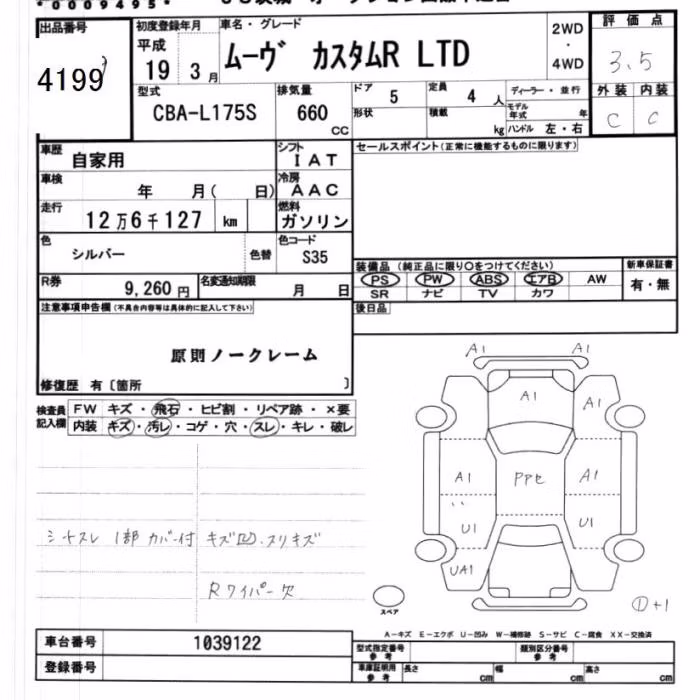 *0009495*
出品番号
4199
初度登録年月
平成
19 3 月
車名・グレード
ムーヴ カスタムR LTD
2WD
・
4WD
評価点
3.5
外装 内装
C C
型式
CBA-L175S
排気量
660
CC
ドア 5
定員 4 人
ディーラー・並行
形状
積載 kg
モデル年式 年
ハンドル 左・右
車歴 自家用
シフト IAT
セールスポイント(正常に機能するものに限ります)
車検 年 月( 日)
冷房 AAC
走行 12万6千127 km
燃料 ガソリン
色 シルバー 色替
色コード S35
装備品 (純正品に限り○をつけてください)
新車保証書
PS PW ABS エアB AW
有・無
SR ナビ TV カワ
R券 9,260円
名変通知期限 月 日
後日品
注意事項申告欄(不具合内容等は具体的に記入して下さい)
原則ノークレーム
修復歴 有〔箇所 〕
検査員記入欄
FW キズ・飛石・ヒビ割・リペア跡・×要
内装 キズ・汚レ・コゲ・穴・スレ・キレ・破レ
シートスレ 1部 カバー付 キズ凹.スリキズ
Rワイパー欠
A1 A1
A1 A1
A1 PPセ A1
U1 U1
UA1
①+1
スペア
A-キズ E-エクボ U-凹み W-補修跡 S-サビ C-腐食 XX-交換済
車台番号 1039122
登録番号
型式指定番号 参考
類別区分番号 参考
車庫証明用 参考
長さ cm 幅 cm 高さ cm